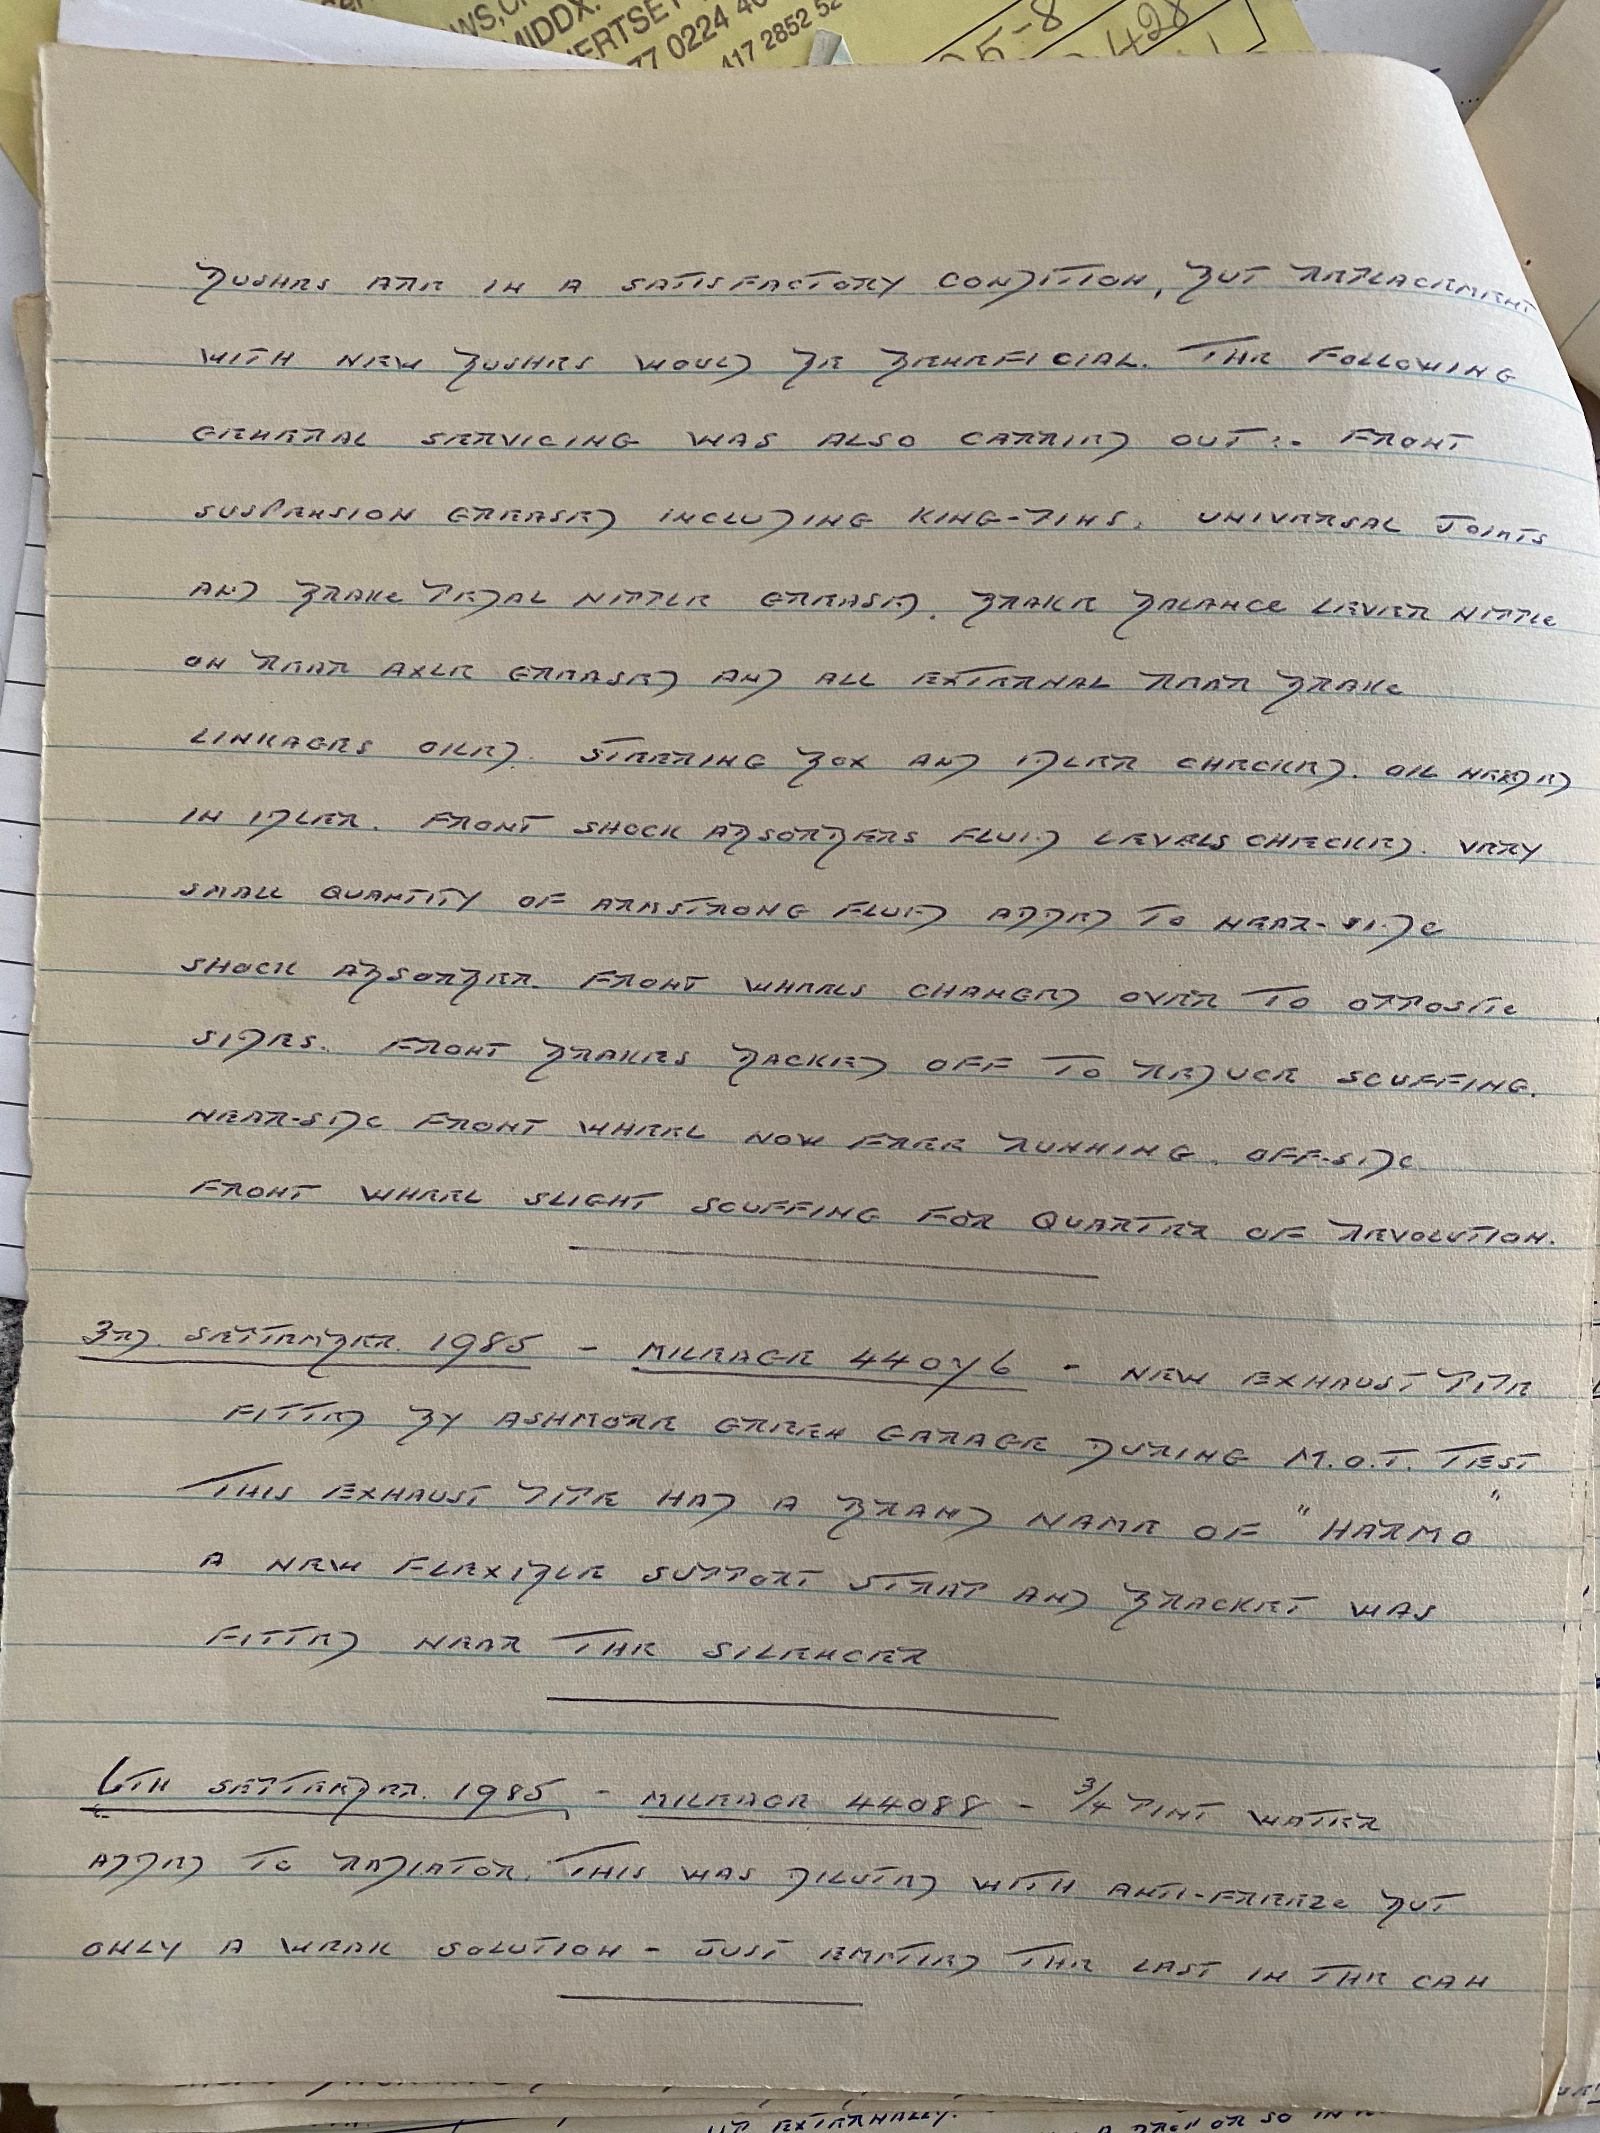 WS,C
MIDDX.
ERTSEY
77 0224 40
417 2852 52
25-8
428
BUSHES ARE IN A SATISFACTORY CONDITION, BUT REPLACEMENT
WITH NEW BUSHES WOULD BE BENEFICIAL. THE FOLLOWING
GENERAL SERVICING WAS ALSO CARRIED OUT:- FRONT
SUSPENSION GREASED INCLUDING KING-PINS. UNIVERSAL JOINTS
AND BRAKE PEDAL NIPPLE GREASED. BRAKE BALANCE LEVER NIPPLE
ON REAR AXLE GREASED AND ALL EXTERNAL REAR BRAKE
LINKAGES OILED. STEERING BOX AND IDLER CHECKED. OIL NEEDED
IN IDLER. FRONT SHOCK ABSORBERS FLUID LEVELS CHECKED. VERY
SMALL QUANTITY OF ARMSTRONG FLUID ADDED TO NEAR-SIDE
SHOCK ABSORBER. FRONT WHEELS CHANGED OVER TO OPPOSITE
SIDES. FRONT BRAKES BACKED OFF TO REDUCE SCUFFING.
NEAR-SIDE FRONT WHEEL NOW FREE RUNNING. OFF-SIDE
FRONT WHEEL SLIGHT SCUFFING FOR QUARTER OF REVOLUTION.
3RD. SEPTEMBER. 1985 - MILEAGE 44076 - NEW EXHAUST PIPE
FITTED BY ASHMORE GREEN GARAGE DURING M.O.T. TEST
THIS EXHAUST PIPE HAD A BRAND NAME OF "HARMO"
A NEW FLEXIBLE SUPPORT STRAP AND BRACKET WAS
FITTED NEAR THE SILENCER
6TH SEPTEMBER. 1985 - MILEAGE 44088 - 3/4 PINT WATER
ADDED TO RADIATOR. THIS WAS DILUTED WITH ANTI-FREEZE BUT
ONLY A WEAK SOLUTION - JUST EMPTIED THE LAST IN THE CAN
UP EXTERNALLY.
OR SO IN